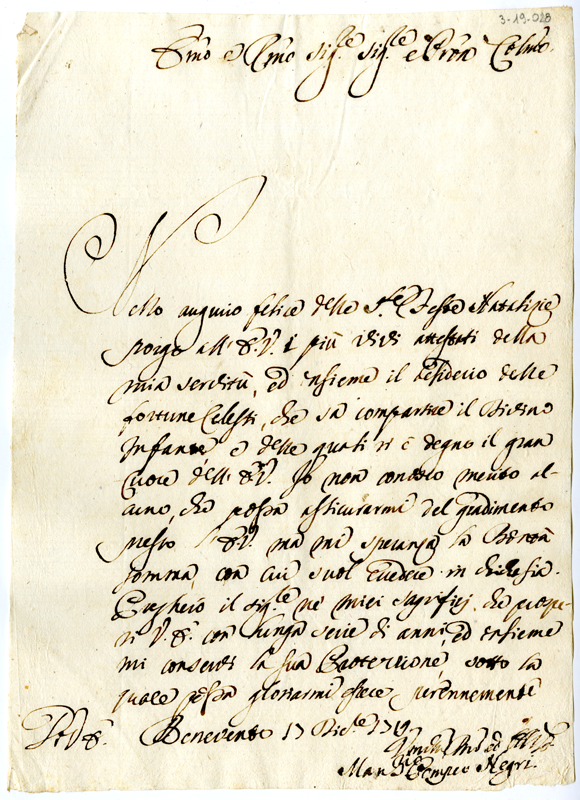 3-19-028
Emo e Rmo Sig.re Sig.re e Pron Colmo
Nello augurio felice delle S.te Feste Natalizie
porgo all' E.V. i più vivi attestati della
mia servitù, ed insieme il desiderio delle
fortune Celesti, che sà compartire il Divino
Infante e delle quali si è degno il gran
Cuore dell' E.V. Io non conosco merito al-
cuno, che possa assicurarmi del gradimento
presso l' E.V. ma mi speranza la Bontà
somma, con cui suol eccedere in
Pregherò il Sig.re ne' miei Sagrifizj, che prospe-
ri V.E. con lunga serie di anni, ed insieme
mi conservi la sua Protezzione, sotto la
quale possa gloriarmi perennemente
Di V.E. Benevento 17 Dic.re 1719
Um.mo
Pompeo Negri.